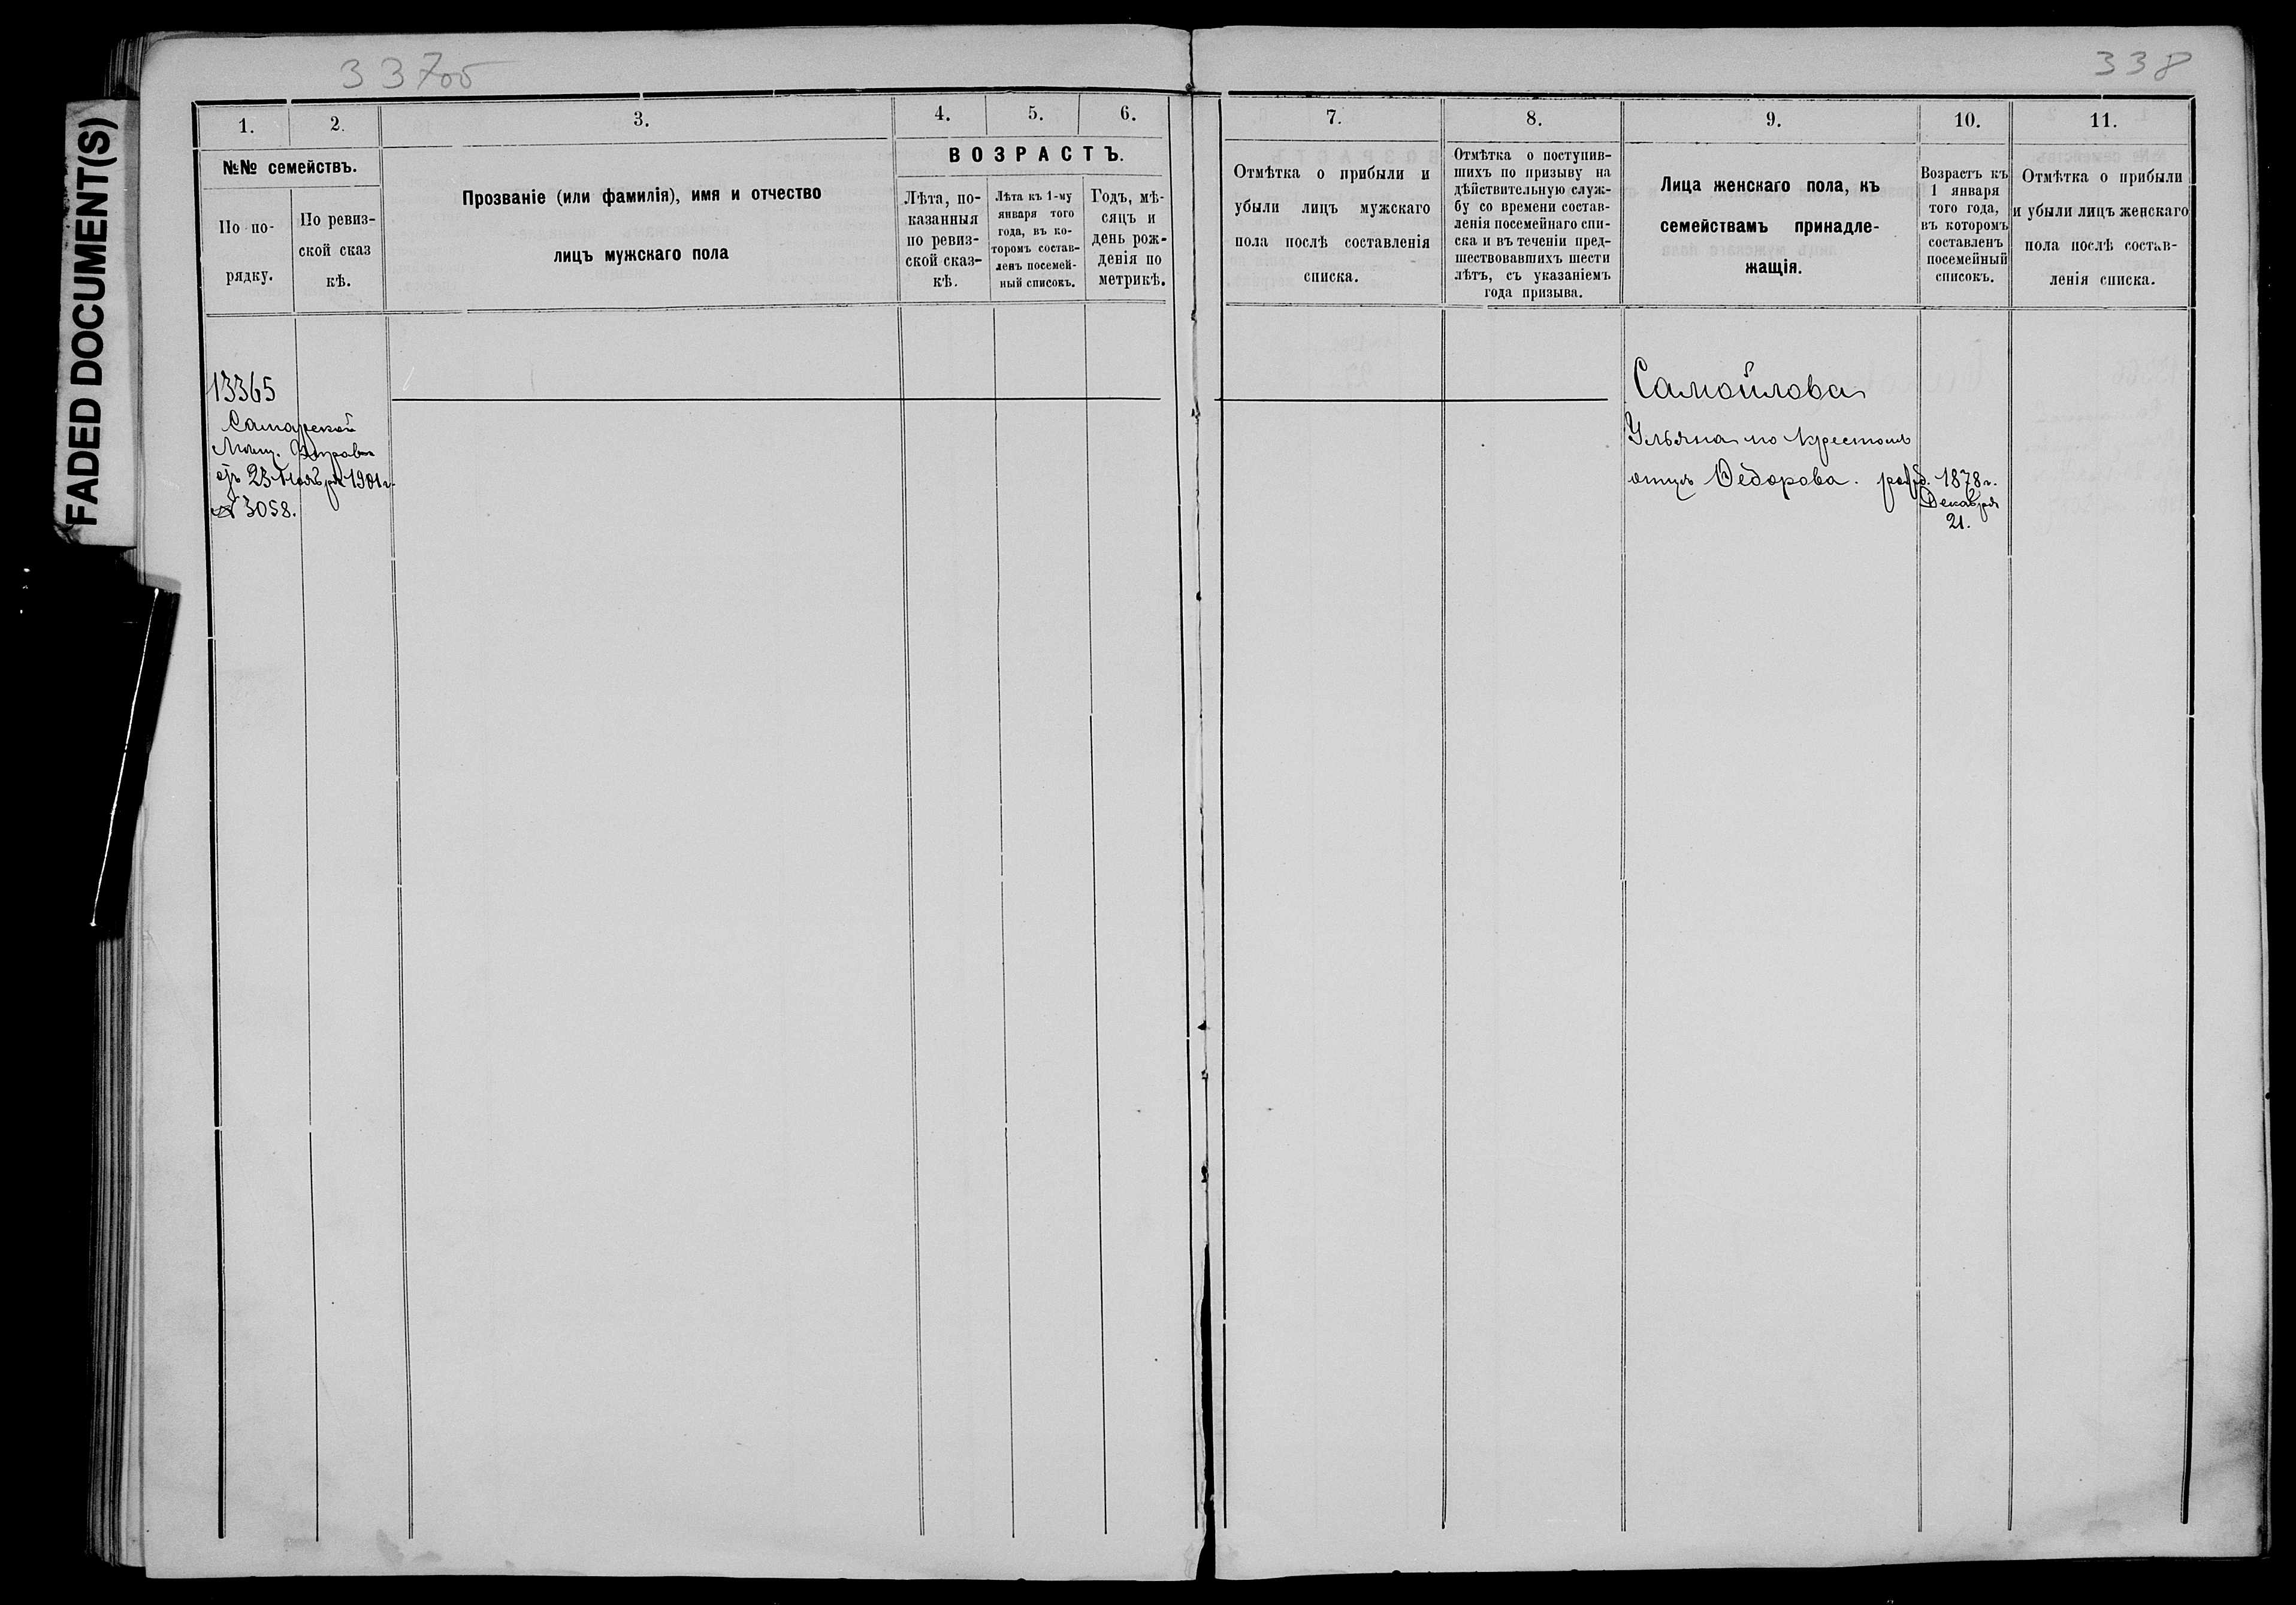 337об
338
FADED DOCUMENT(S)
1.
2.
3.
4.
5.
6.
№№ семействъ.
По по-
рядку.
По ревиз-
ской сказ
кѣ.
Прозваніе (или фамилія), имя и отчество
лицъ мужскаго пола
ВОЗРАСТЪ.
Лѣта, по-
казанныя
по ревиз-
ской сказ-
кѣ.
Лѣта къ 1-му
января того
года, въ ко-
торомъ состав-
ленъ посемей-
ный списокъ.
Годъ, мѣ-
сяцъ и
день рож-
денія по
метрикѣ.
7.
8.
9.
10.
11.
Отмѣтка о прибыли и
убыли лицъ мужскаго
пола послѣ составленія
списка.
Отмѣтка о поступив-
шихъ по призыву на
дѣйствительную служ-
бу со времени состав-
ленія посемейнаго спи-
ска и въ теченіи пред-
шествовавшихъ шести
лѣтъ, съ указаніемъ
года призыва.
Лица женскаго пола, къ
семействамъ принадле-
жащія.
Возрастъ къ
1 января
того года,
въ которомъ
составленъ
посемейный
списокъ.
Отмѣтка о прибыли
и убыли лицъ женскаго
пола послѣ состав-
ленія списка.
13365
Самарской
Мѣщ. Управы
отъ 23 Ноября 1901 г.
№ 3058.
Самойлова
Ульяна по крестном
отцу Ѳедорова. рожд. 1878 г.
Декабря
21.